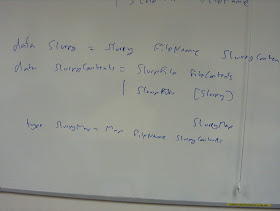 data Slurpy = Slurpy FileName SlurpyContents
data SlurpyContents = SlurpFile FileContents
| SlurpDir [Slurpy]
SlurpyMap
type SlurpyMap = Map FileName SlurpyContents